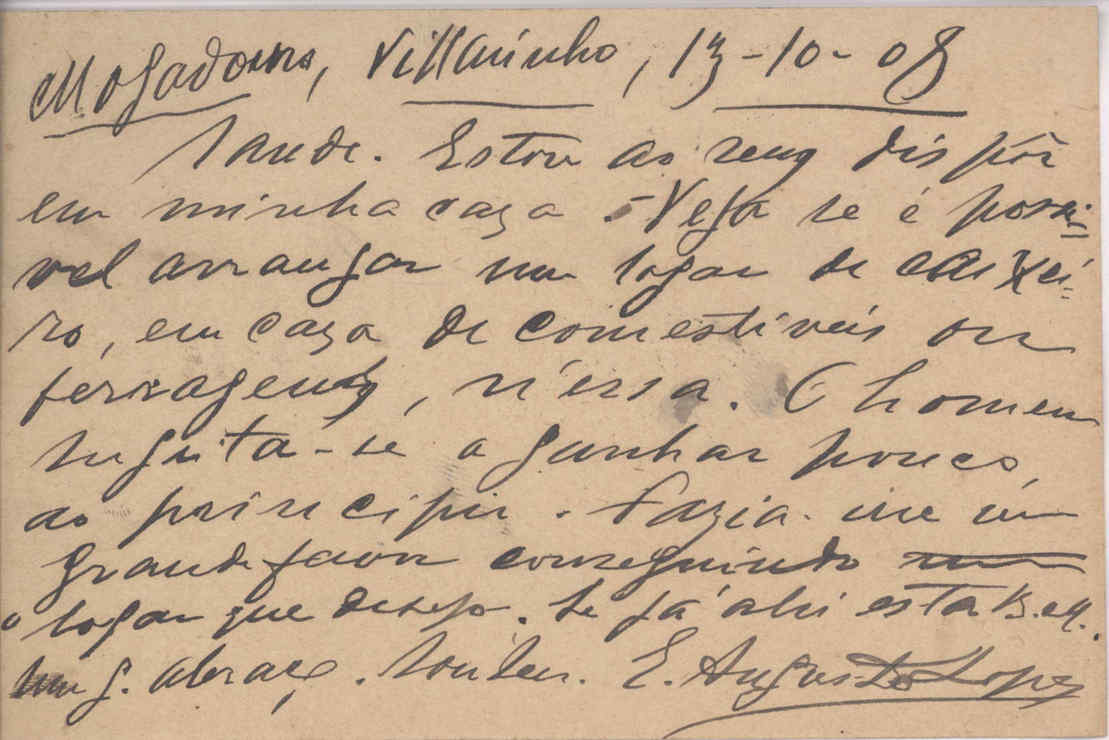 Mogadouro, Villarinho, 13-10-08
Saude. Estou ao seu dispôr
em minha caza. - Veja se é possi-
vel arranjar um logar de caixei-
ro, em caza de comestiveis ou
ferragens, n'essa. O homem
sugeita-se a ganhar pouco
ao principio. Fazia-me um
grande favor conseguindo
o logar que desejo. Se já ahi está B. M.
Um g. abraço. E. Augusto Lopes